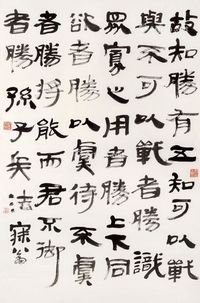 故知勝有五知可以戰
與不可以戰者勝識
眾寡之用者勝上下同
欲者勝以虞待不虞
者勝將能而君不御
者勝孫子兵法
翁